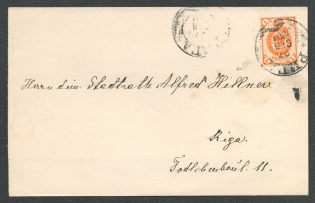 Herrn dim. Stadtrath Alfred Hillner
Riga.
Todlebenboul. 11.